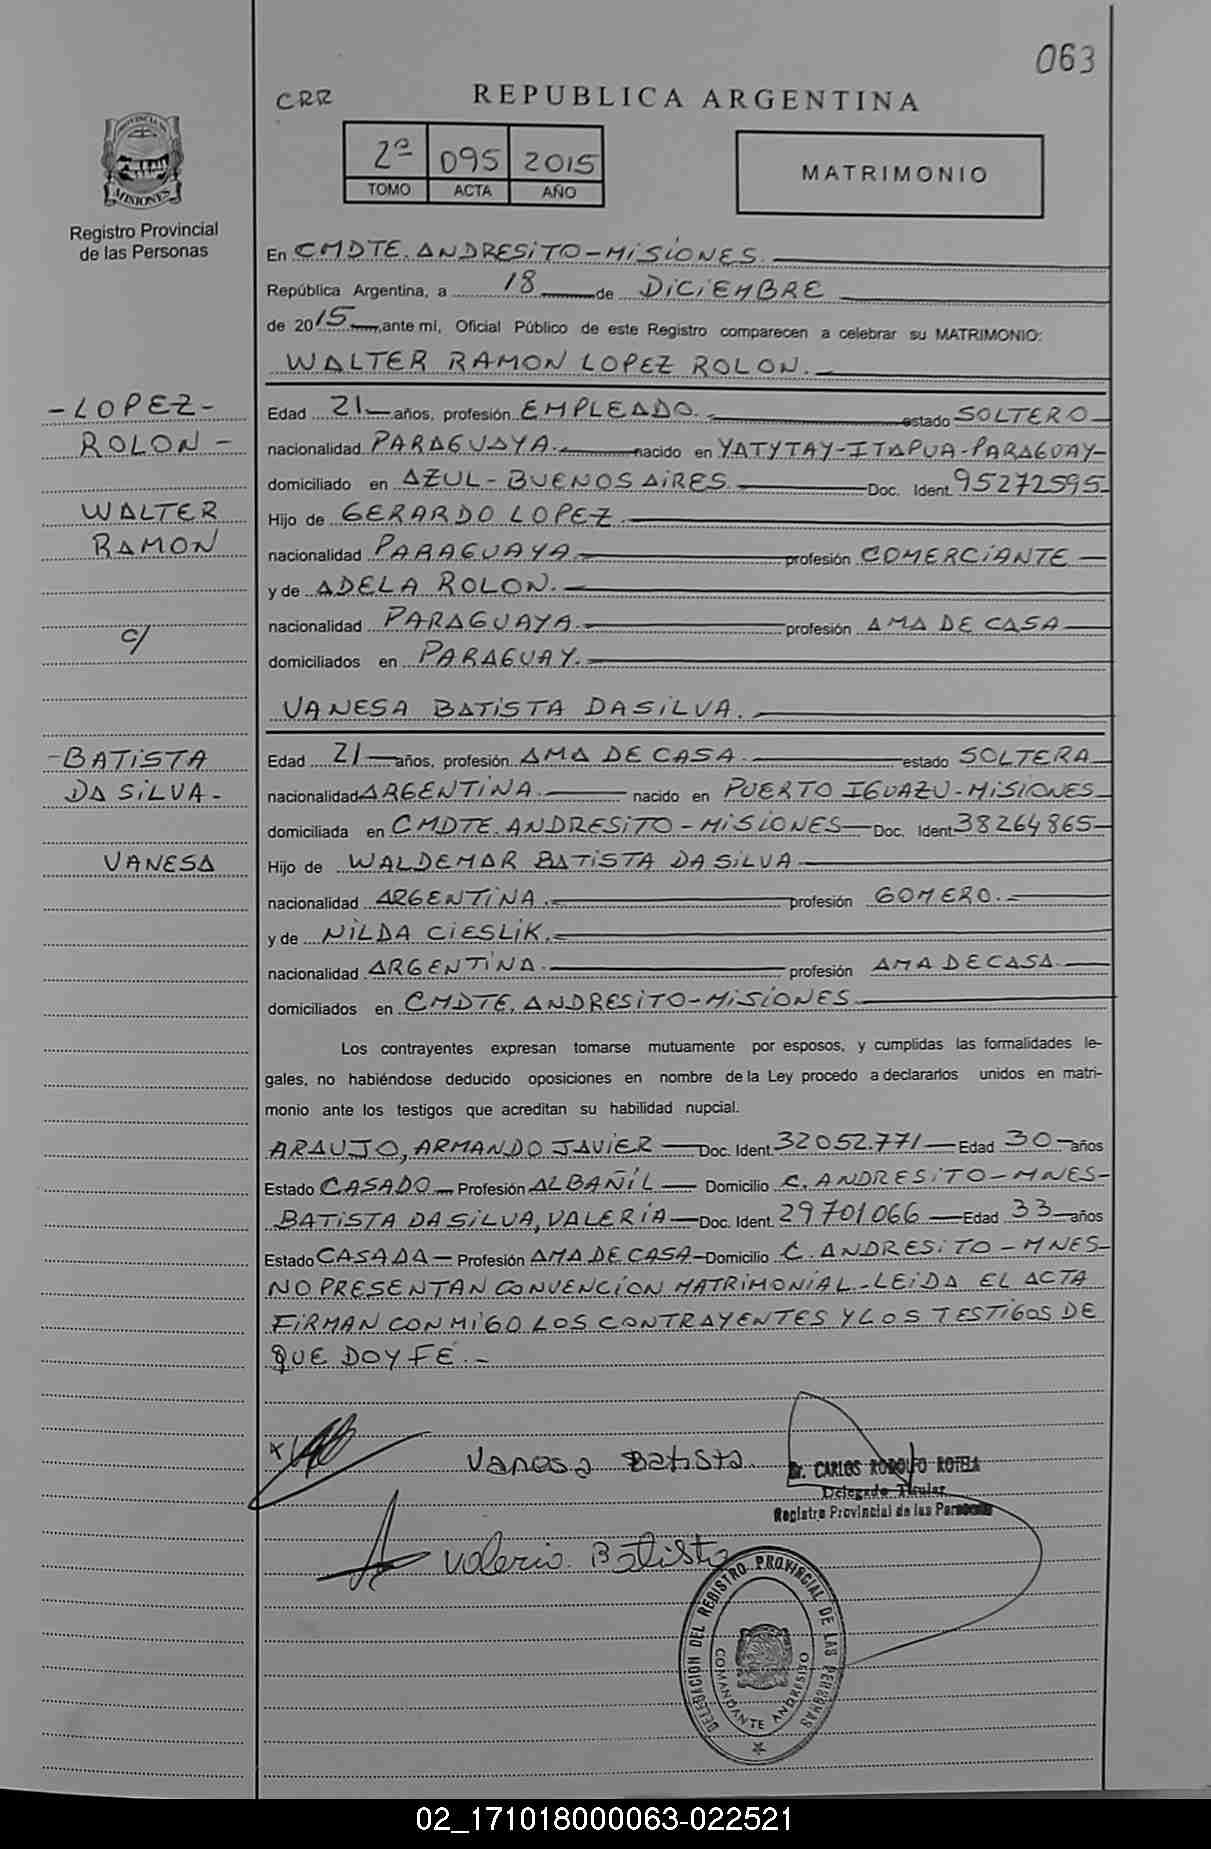 063
CRR
REPUBLICA ARGENTINA
2º 095 2015
TOMO ACTA AÑO
MATRIMONIO
PROVINCIA DE
MISIONES
Registro Provincial
de las Personas
En CMDTE. ANDRESITO-MISIONES.
República Argentina, a 18 de DICIEMBRE
de 2015, ante mi, Oficial Público de este Registro comparecen a celebrar su MATRIMONIO:
WALTER RAMON LOPEZ ROLON.
-LOPEZ-
ROLON-
WALTER
RAMON
c/
Edad 21 años, profesión EMPLEADO. estado SOLTERO
nacionalidad PARAGUAYA. nacido en YATYTAY-ITAPUA-PARAGUAY-
domiciliado en AZUL-BUENOS AIRES Doc. Ident. 95272595
Hijo de GERARDO LOPEZ
nacionalidad PARAGUAYA. profesión COMERCIANTE
y de ADELA ROLON.
nacionalidad PARAGUAYA. profesión AMA DE CASA
domiciliados en PARAGUAY.
VANESA BATISTA DASILVA.
-BATISTA
DA SILVA-
VANESA
Edad 21 años, profesión AMA DE CASA. estado SOLTERA
nacionalidad ARGENTINA. nacido en PUERTO IGUAZU-MISIONES
domiciliada en CMDTE. ANDRESITO-MISIONES Doc. Ident 38264865
Hijo de WALDEMAR BATISTA DA SILVA
nacionalidad ARGENTINA. profesión GOMERO.
y de NILDA CIESLIK.
nacionalidad ARGENTINA. profesión AMA DE CASA
domiciliados en CMDTE. ANDRESITO-MISIONES
Los contrayentes expresan tomarse mutuamente por esposos, y cumplidas las formalidades le-
gales, no habiéndose deducido oposiciones en nombre de la Ley procedo a declararlos unidos en matri-
monio ante los testigos que acreditan su habilidad nupcial.
ARAUJO, ARMANDO JAVIER Doc. Ident. 32052.771 Edad 30 años
Estado CASADO Profesión ALBAÑIL Domicilio C. ANDRESITO-MNES-
BATISTA DA SILVA, VALERIA Doc. Ident. 29701066 Edad 33 años
Estado CASADA Profesión AMA DE CASA Domicilio C. ANDRESITO-MNES-
NO PRESENTAN CONVENCION MATRIMONIAL-LEIDA EL ACTA
FIRMAN CONMIGO LOS CONTRAYENTES Y LOS TESTIGOS DE
QUE DOY FE.-
Vanesa Batista
Dr. CARLOS RODOLFO ROTELA
Delegado Titular
Registro Provincial de las Personas
Valeria Batista
DELEGACIÓN DEL REGISTRO PROVINCIAL DE LAS PERSONAS
COMANDANTE ANDRESITO
02_171018000063-022521